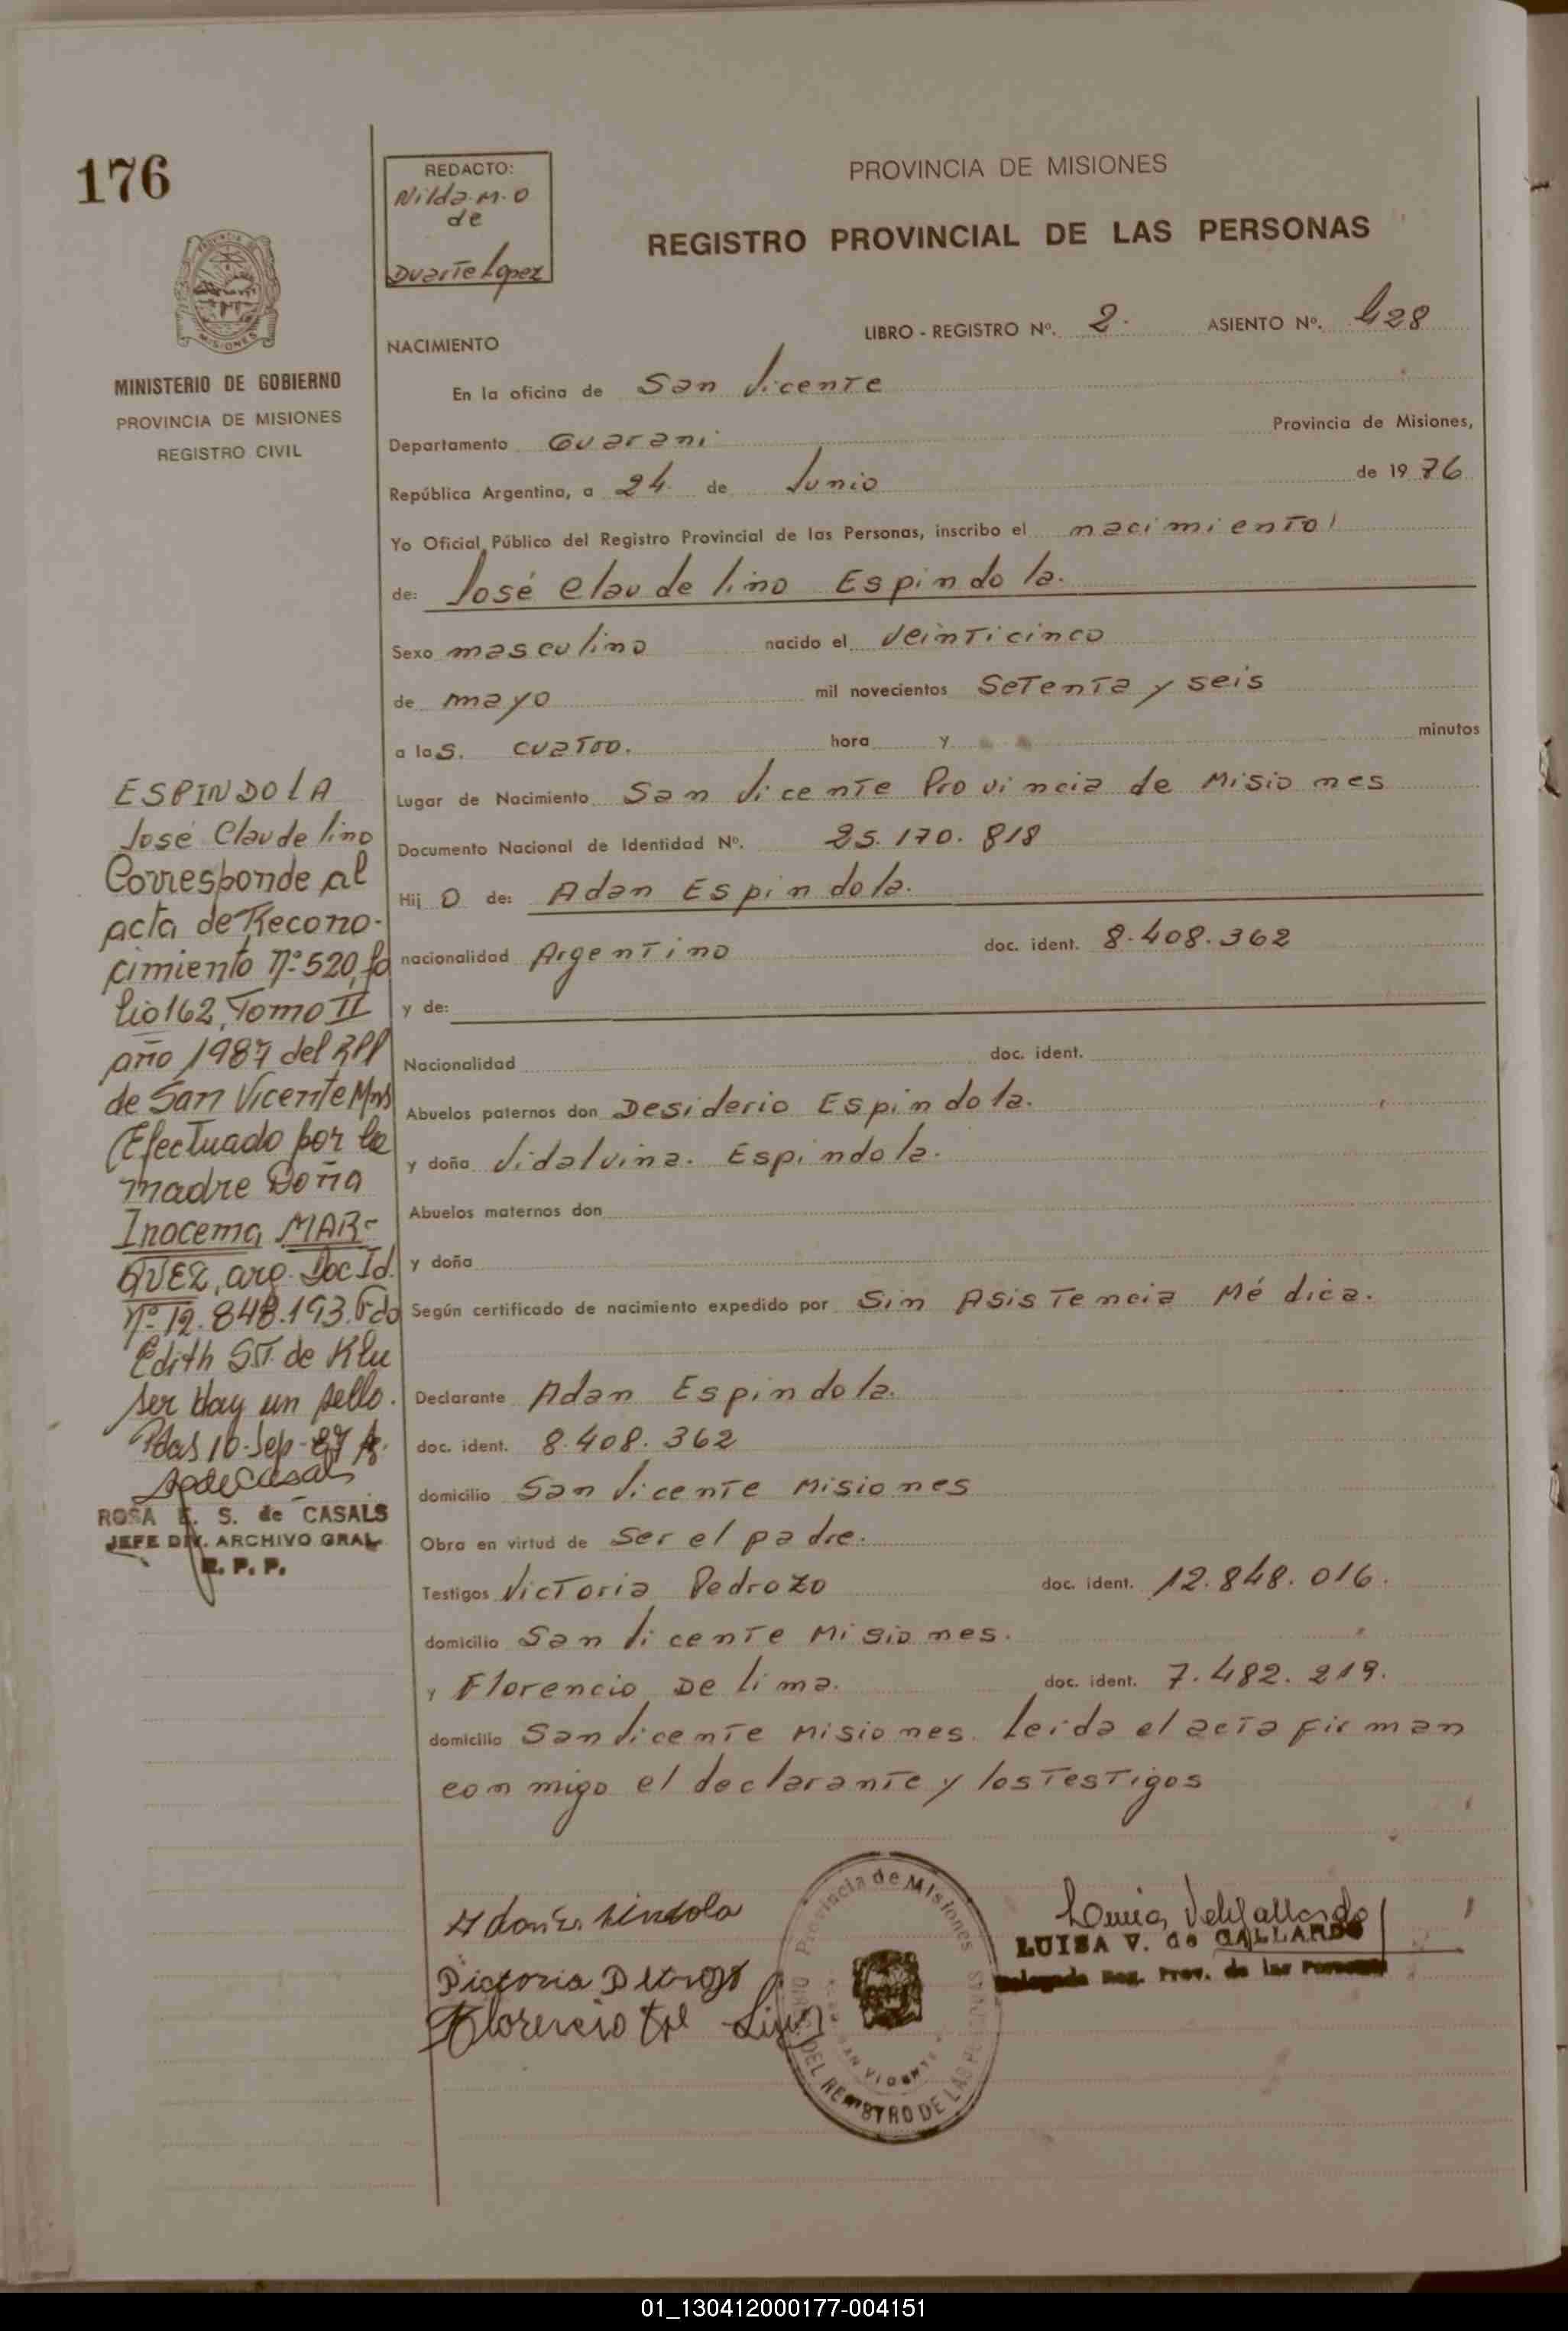 176
REDACTO:
Nilda. M. O
de
Duarte Lopez
PROVINCIA DE MISIONES
REGISTRO PROVINCIAL DE LAS PERSONAS
MISIONES
MINISTERIO DE GOBIERNO
PROVINCIA DE MISIONES
REGISTRO CIVIL
LIBRO - REGISTRO Nº. 2. ASIENTO Nº. 428
NACIMIENTO
En la oficina de San Vicente
Departamento Guarani Provincia de Misiones,
República Argentina, a 24. de Junio de 1976
Yo Oficial Público del Registro Provincial de las Personas, inscribo el nacimiento
de: José Claudelino Espindola.
Sexo masculino nacido el veinticinco
de mayo mil novecientos Setenta y seis
a las. cuatro. hora y minutos
Lugar de Nacimiento San Vicente Provincia de Misiones
Documento Nacional de Identidad Nº. 25.170.818
Hij o de: Adan Espindola.
nacionalidad Argentino doc. ident. 8.408.362
y de:
Nacionalidad doc. ident.
Abuelos paternos don Desiderio Espindola.
y doña Vidalvina. Espindola.
Abuelos maternos don
y doña
Según certificado de nacimiento expedido por Sin Asistencia Médica.
Declarante Adan Espindola.
doc. ident. 8.408.362
domicilio San Vicente Misiones
Obra en virtud de Ser el padre.
Testigos Victoria Pedrozo doc. ident. 12.848.016.
domicilio San Vicente Misiones.
y Florencio De lima. doc. ident. 7.482.219.
domicilio San Vicente Misiones. Leida el acta firman
conmigo el declarante y los Testigos
ESPINDOLA
José Claudelino
Corresponde al
acta de Recono-
cimiento Nº 520, fo
lio 162, Tomo II
año 1987 del RPP
de San Vicente Mns
Efectuado por la
madre Doña
Inocema MAR-
QUEZ, arg. Doc Id.
Nº 12.848.193. Fdo
Edith ST. de Klu
ser Hay un sello.
Pdas 10-Sep-87
ROSA E. S. de CASALS
JEFE DIV. ARCHIVO GRAL
R. P. P.
Florencio de Lima
Provincia de Misiones
DEL REGISTRO DE LAS
SAN VICENTE
LUISA V. de GALLARDO
Delegada Reg. Prov. de las Personas
01_130412000177-004151